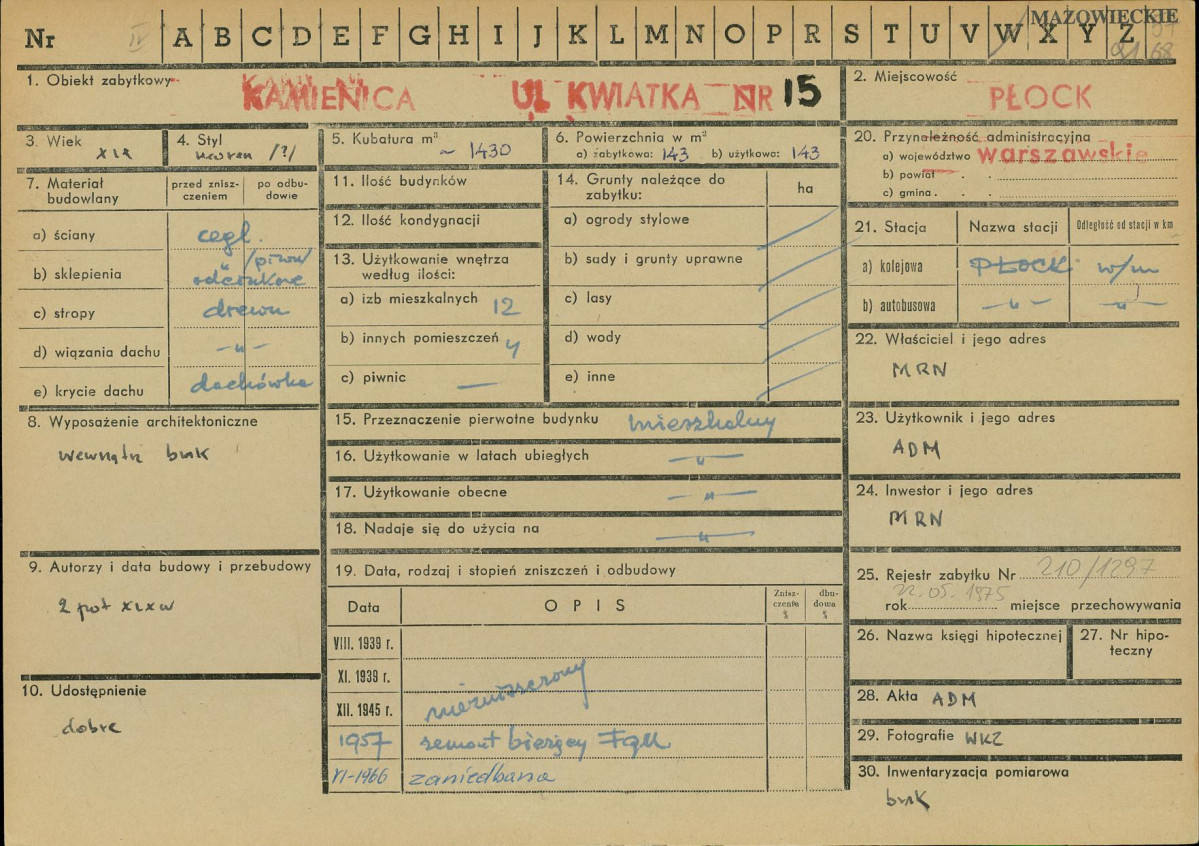 Nr IV A B C D E F G H I J K L M N O P R S T U V W X Y Z
MAZOWIECKIE
1. Obiekt zabytkowy KAMIENICA UL KWIATKA NR 15
2. Miejscowość PŁOCK
3. Wiek XIX
4. Styl /?/
5. Kubatura m³ ~ 1430
6. Powierzchnia w m²
a) zabytkowa: 143 b) użytkowa: 143
20. Przynależność administracyjna
a) województwo warszawskie
b) powiat
c) gmina
7. Materiał budowlany
przed zniszczeniem
po odbudowie
a) ściany cegl.
b) sklepienia /piwn/ odcinkowe
c) stropy drewn
d) wiązania dachu -„-
e) krycie dachu dachówka
8. Wyposażenie architektoniczne
wewnątrz brak
9. Autorzy i data budowy i przebudowy
2 poł XIX w
10. Udostępnienie
dobre
11. Ilość budynków
12. Ilość kondygnacji
13. Użytkowanie wnętrza według ilości:
a) izb mieszkalnych 12
b) innych pomieszczeń 4
c) piwnic —
14. Grunty należące do zabytku:
ha
a) ogrody stylowe
b) sady i grunty uprawne
c) lasy
d) wody
e) inne
15. Przeznaczenie pierwotne budynku mieszkalny
16. Użytkowanie w latach ubiegłych -„-
17. Użytkowanie obecne -„-
18. Nadaje się do użycia na -„-
19. Data, rodzaj i stopień zniszczeń i odbudowy
Data OPIS Zniszczenia % dbudowa %
VIII. 1939 r.
XI. 1939 r.
XII. 1945 r. niezniszczony
1957 remont bieżący
VI-1966 zaniedbana
21. Stacja Nazwa stacji Odległość od stacji w km
a) kolejowa PŁOCK w/m
b) autobusowa -„- -„-
22. Właściciel i jego adres
MRN
23. Użytkownik i jego adres
ADM
24. Inwestor i jego adres
MRN
25. Rejestr zabytku Nr 210/1297
22.05.1975
rok miejsce przechowywania
26. Nazwa księgi hipotecznej
27. Nr hipoteczny
28. Akta ADM
29. Fotografie WKZ
30. Inwentaryzacja pomiarowa
brak